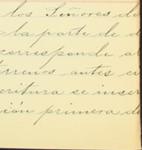 los Señores de
la parte de d
corresponde al
terrenos antes ex
critura se inser
ción primera de